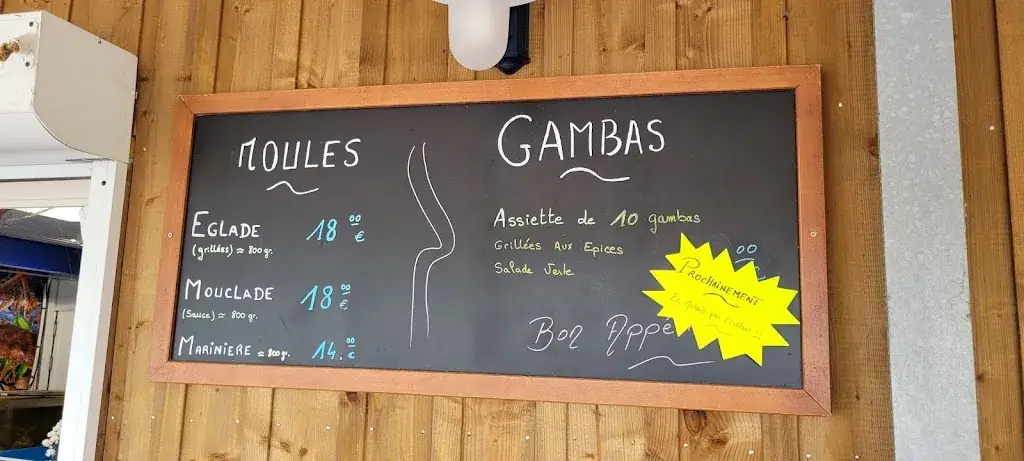 MOULES
EGLADE 18 00 €
(grillées) ≈ 800 gr.
MOUCLADE 18 00 €
(Sauce) ≈ 800 gr.
MARINIERE ≈ 800 gr. 14. 00 €
GAMBAS
Assiette de 10 gambas
Grillées Aux Epices
Salade Verte
00
PROCHAINEMENT
Bon Appé